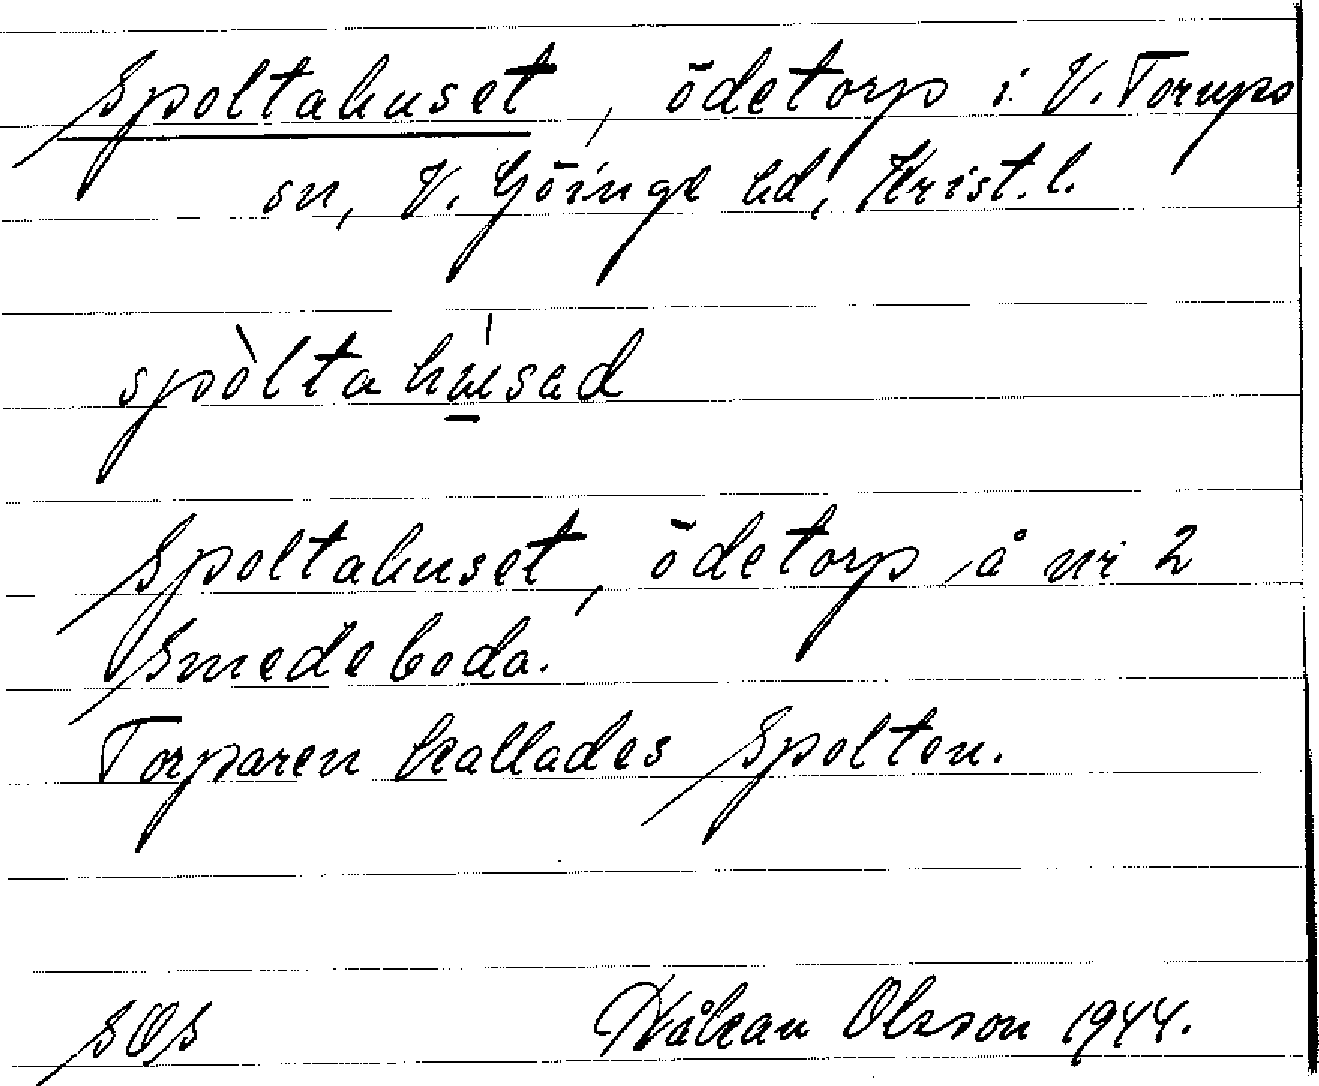 Spoltahuset, ödetorp i V. Torups
sn, V. Göinge hd, Krist. l.
spòltahu̲̍sad
Spoltahuset, ödetorp å nr 2
Smedeboda.
Torparen kallades Spolten.
SOS Håkan Olsson 1944.